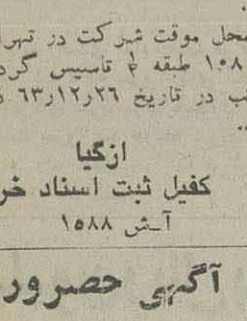 محل موقت شرکت در تهران
۱۵۸ طبقه ۴ تاسیس گرد
ب در تاریخ ۶۳ر۱۲ر۲۶
ازگیا
کفیل ثبت اسناد خر
آـش ۱۵۸۸
آگهی حصرور